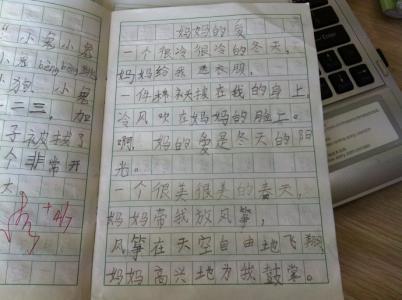 小 小
小
小狗 小
二二三,加
子被拔了
个非常开
妈妈的爱
一个很冷很冷的冬天,
妈妈给我送衣服,
一件在我的身上,
冷风吹在妈妈的脸上。
啊! 妈的爱是冬天的阳
光。
一个很美很美的春天,
妈妈带我放风筝,
风筝在天空自由地飞翔
妈妈高兴地为我鼓掌。